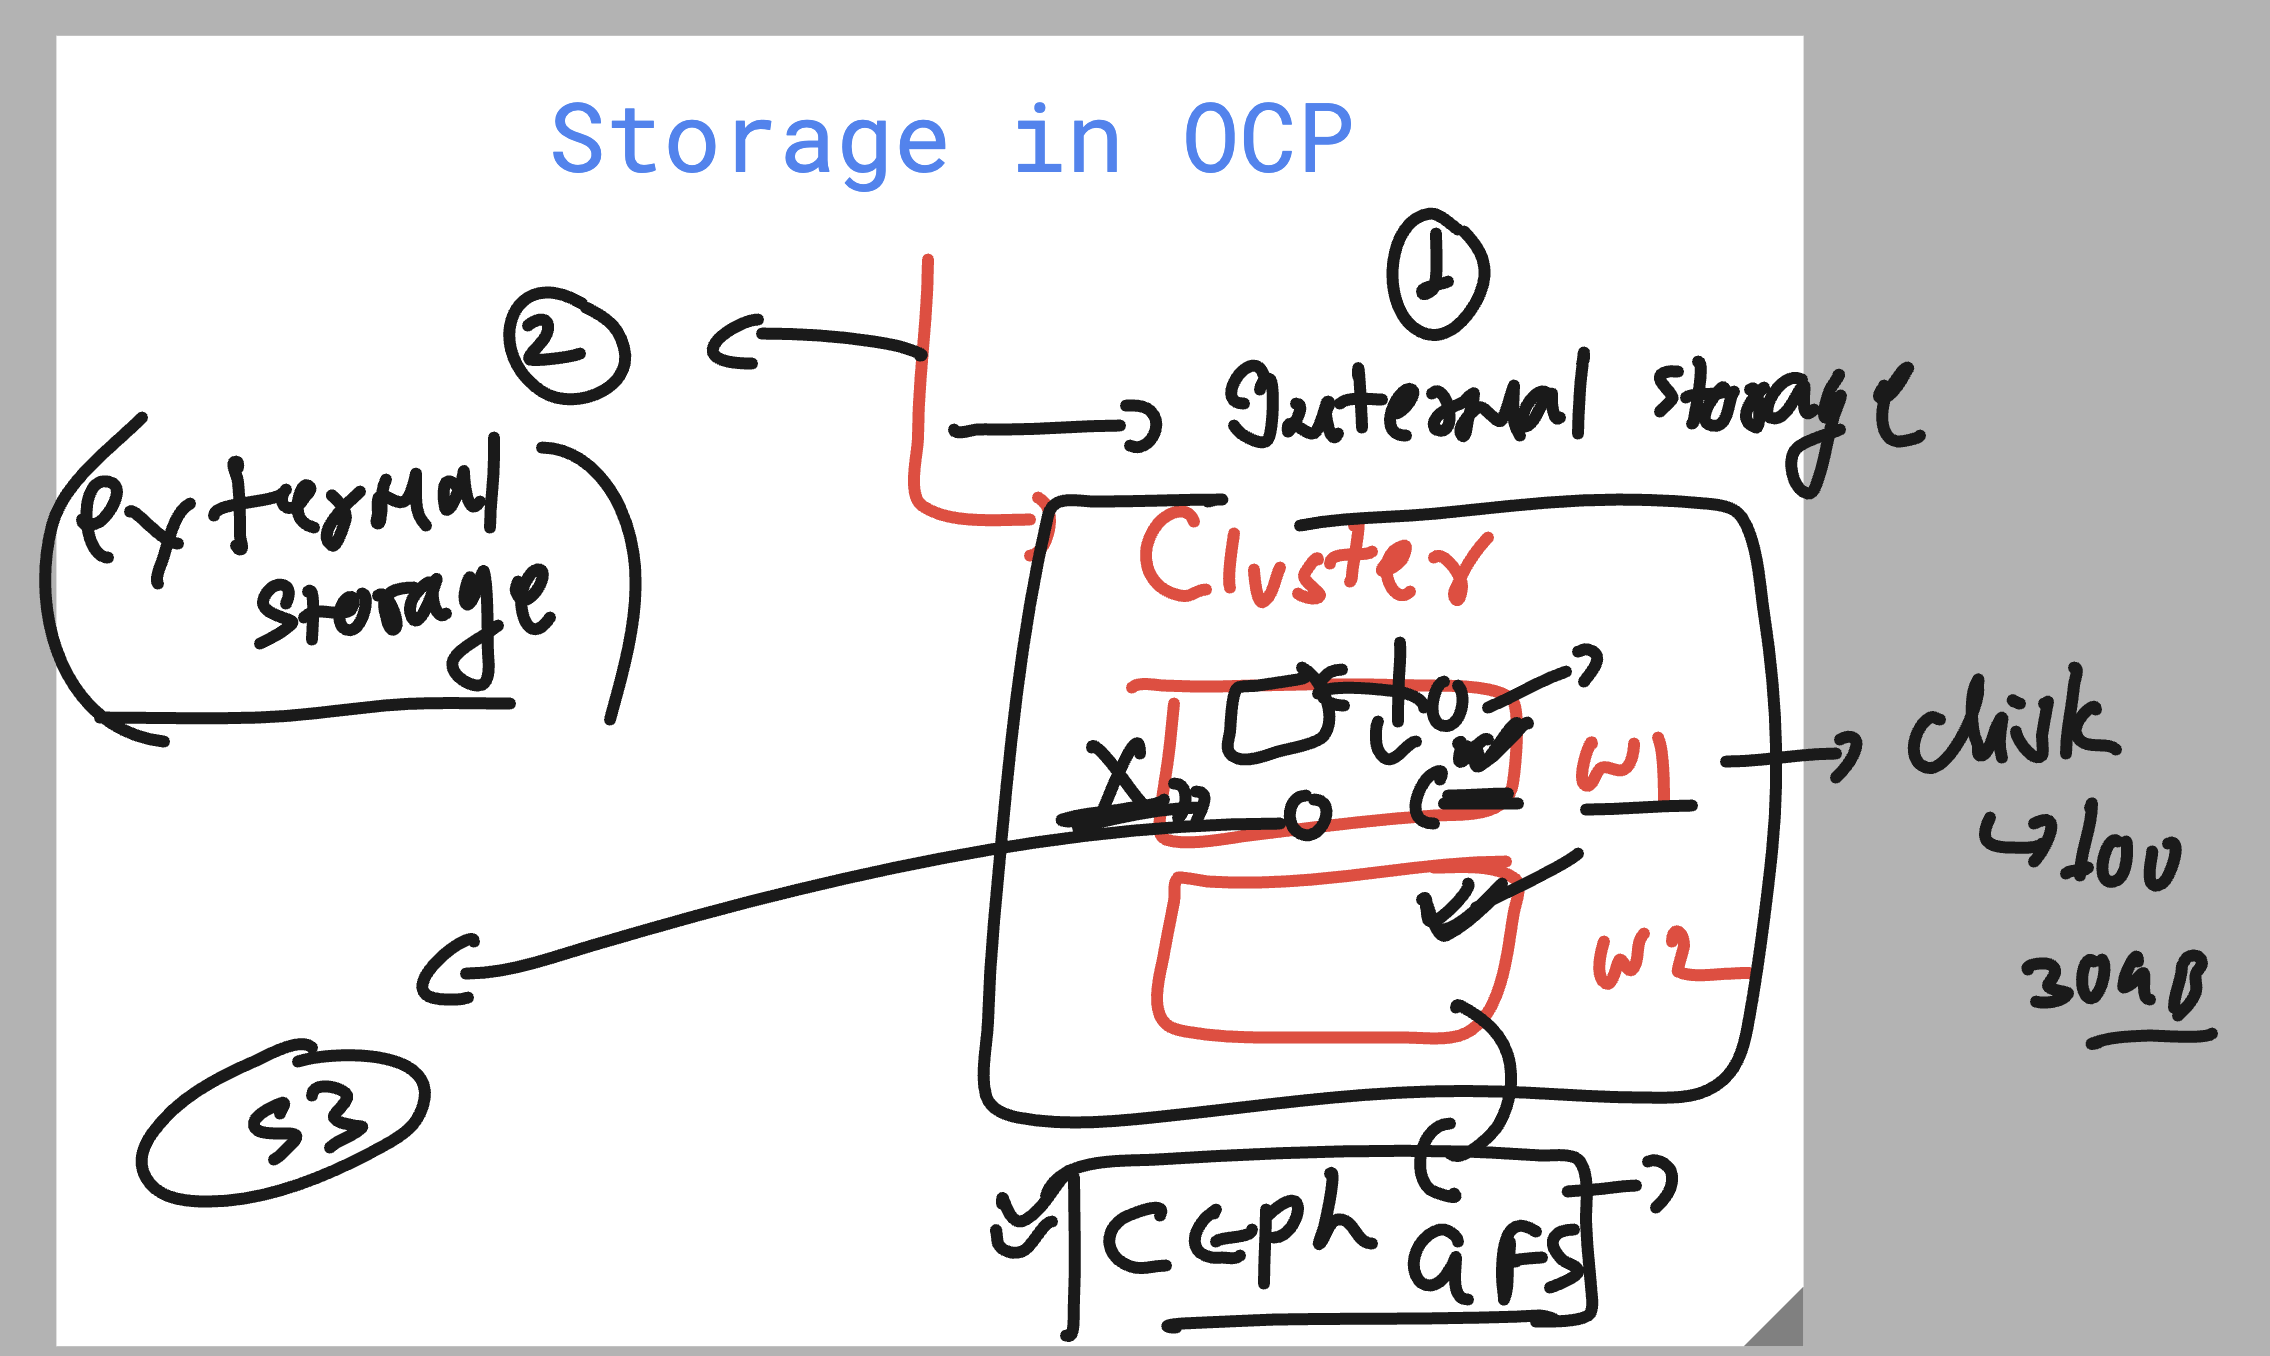 Storage in OCP
1
2
Internal storage
external
storage
Cluster
W1
disk
100
30GB
W2
S3
Ceph
GFS